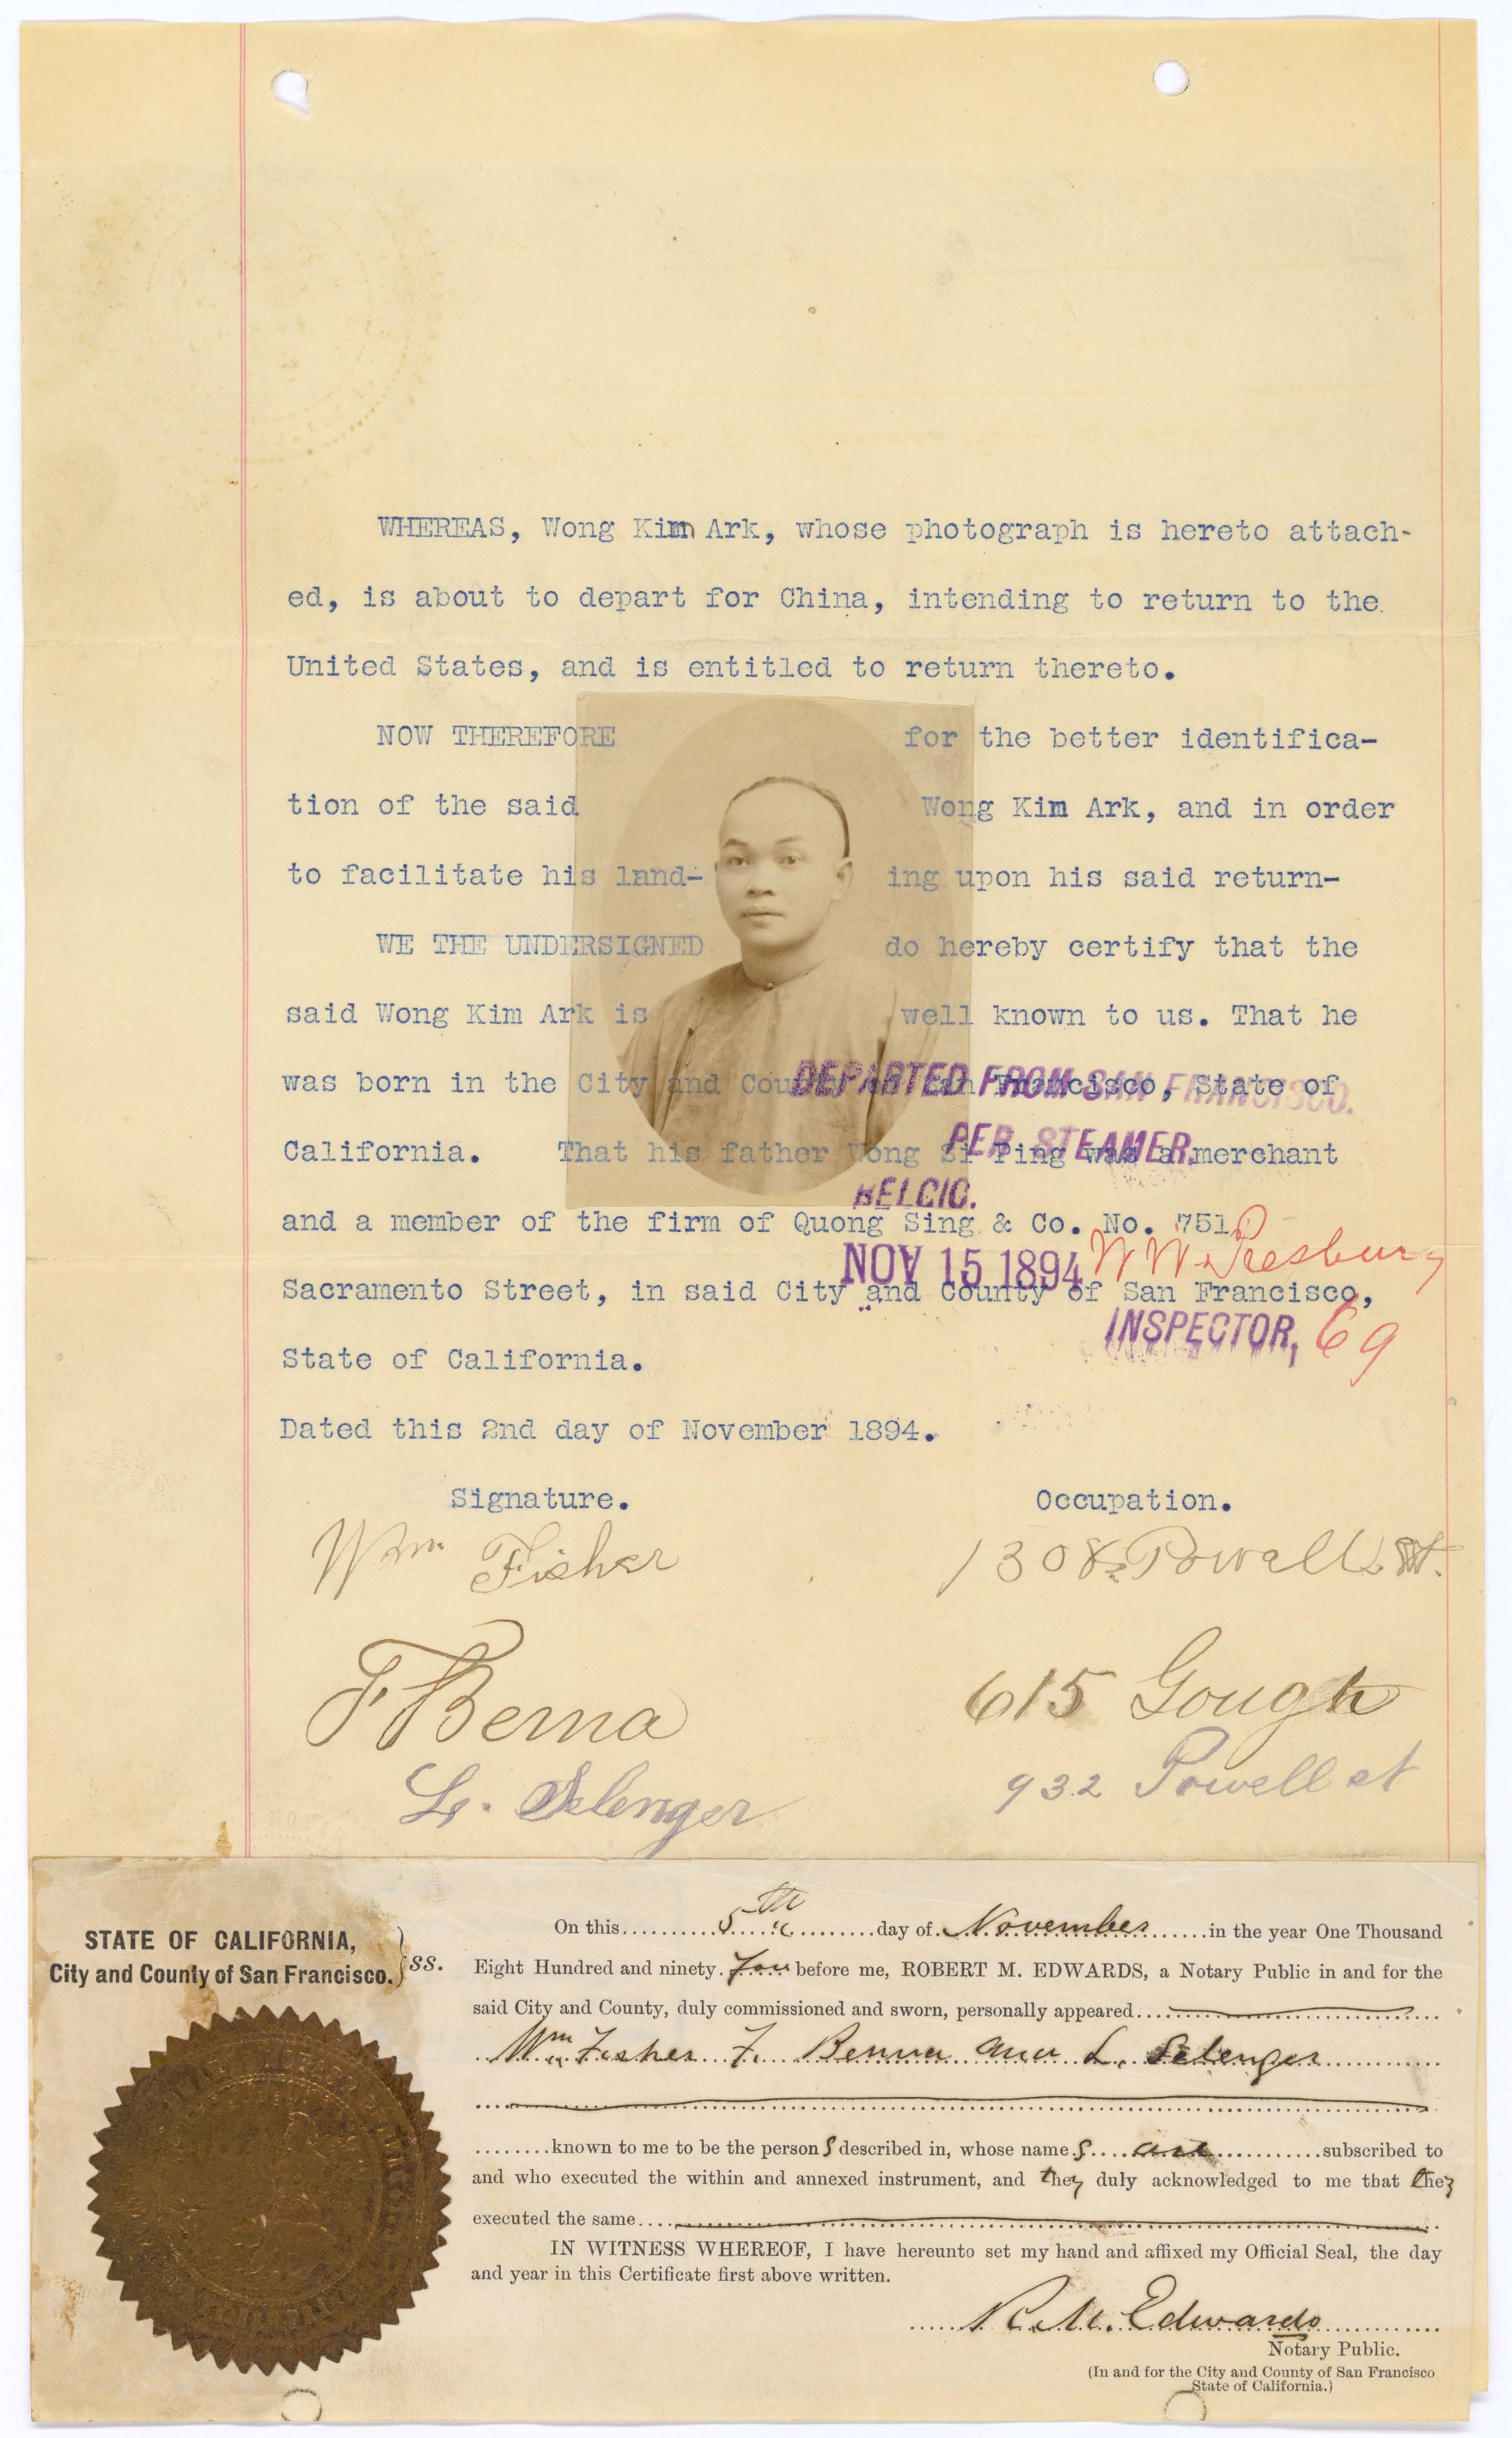 WHEREAS, Wong Kim Ark, whose photograph is hereto attach-
ed, is about to depart for China, intending to return to the
United States, and is entitled to return thereto.
NOW THEREFORE for the better identifica-
tion of the said Wong Kim Ark, and in order
to facilitate his land- ing upon his said return-
WE THE UNDERSIGNED do hereby certify that the
said Wong Kim Ark is well known to us. That he
was born in the City and County of San Francisco, State of
DEPARTED FROM SAN FRANCISCO.
California. That his father Wong Si Ping was a merchant
PER STEAMER,
BELGIC.
and a member of the firm of Quong Sing & Co. No. 751
NOV 15 1894 W W Presbury
Sacramento Street, in said City and County of San Francisco,
INSPECTOR, 69
State of California.
Dated this 2nd day of November 1894.
Signature. Occupation.
Wm Fisher 1308 Powell St.
F Berna 615 Gough
L. Selenger 932 Powell st
STATE OF CALIFORNIA,
City and County of San Francisco. } ss.
On this 5th day of November in the year One Thousand
Eight Hundred and ninety four before me, ROBERT M. EDWARDS, a Notary Public in and for the
said City and County, duly commissioned and sworn, personally appeared
Wm Fisher F. Benna and L. Selenger
known to me to be the persons described in, whose names are subscribed to
and who executed the within and annexed instrument, and they duly acknowledged to me that they
executed the same
IN WITNESS WHEREOF, I have hereunto set my hand and affixed my Official Seal, the day
and year in this Certificate first above written.
R. M. Edwards
Notary Public.
(In and for the City and County of San Francisco
State of California.)